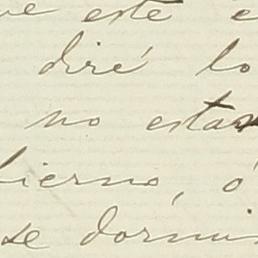 ue este e
diré lo
no estar
bierno, ó
se dormi